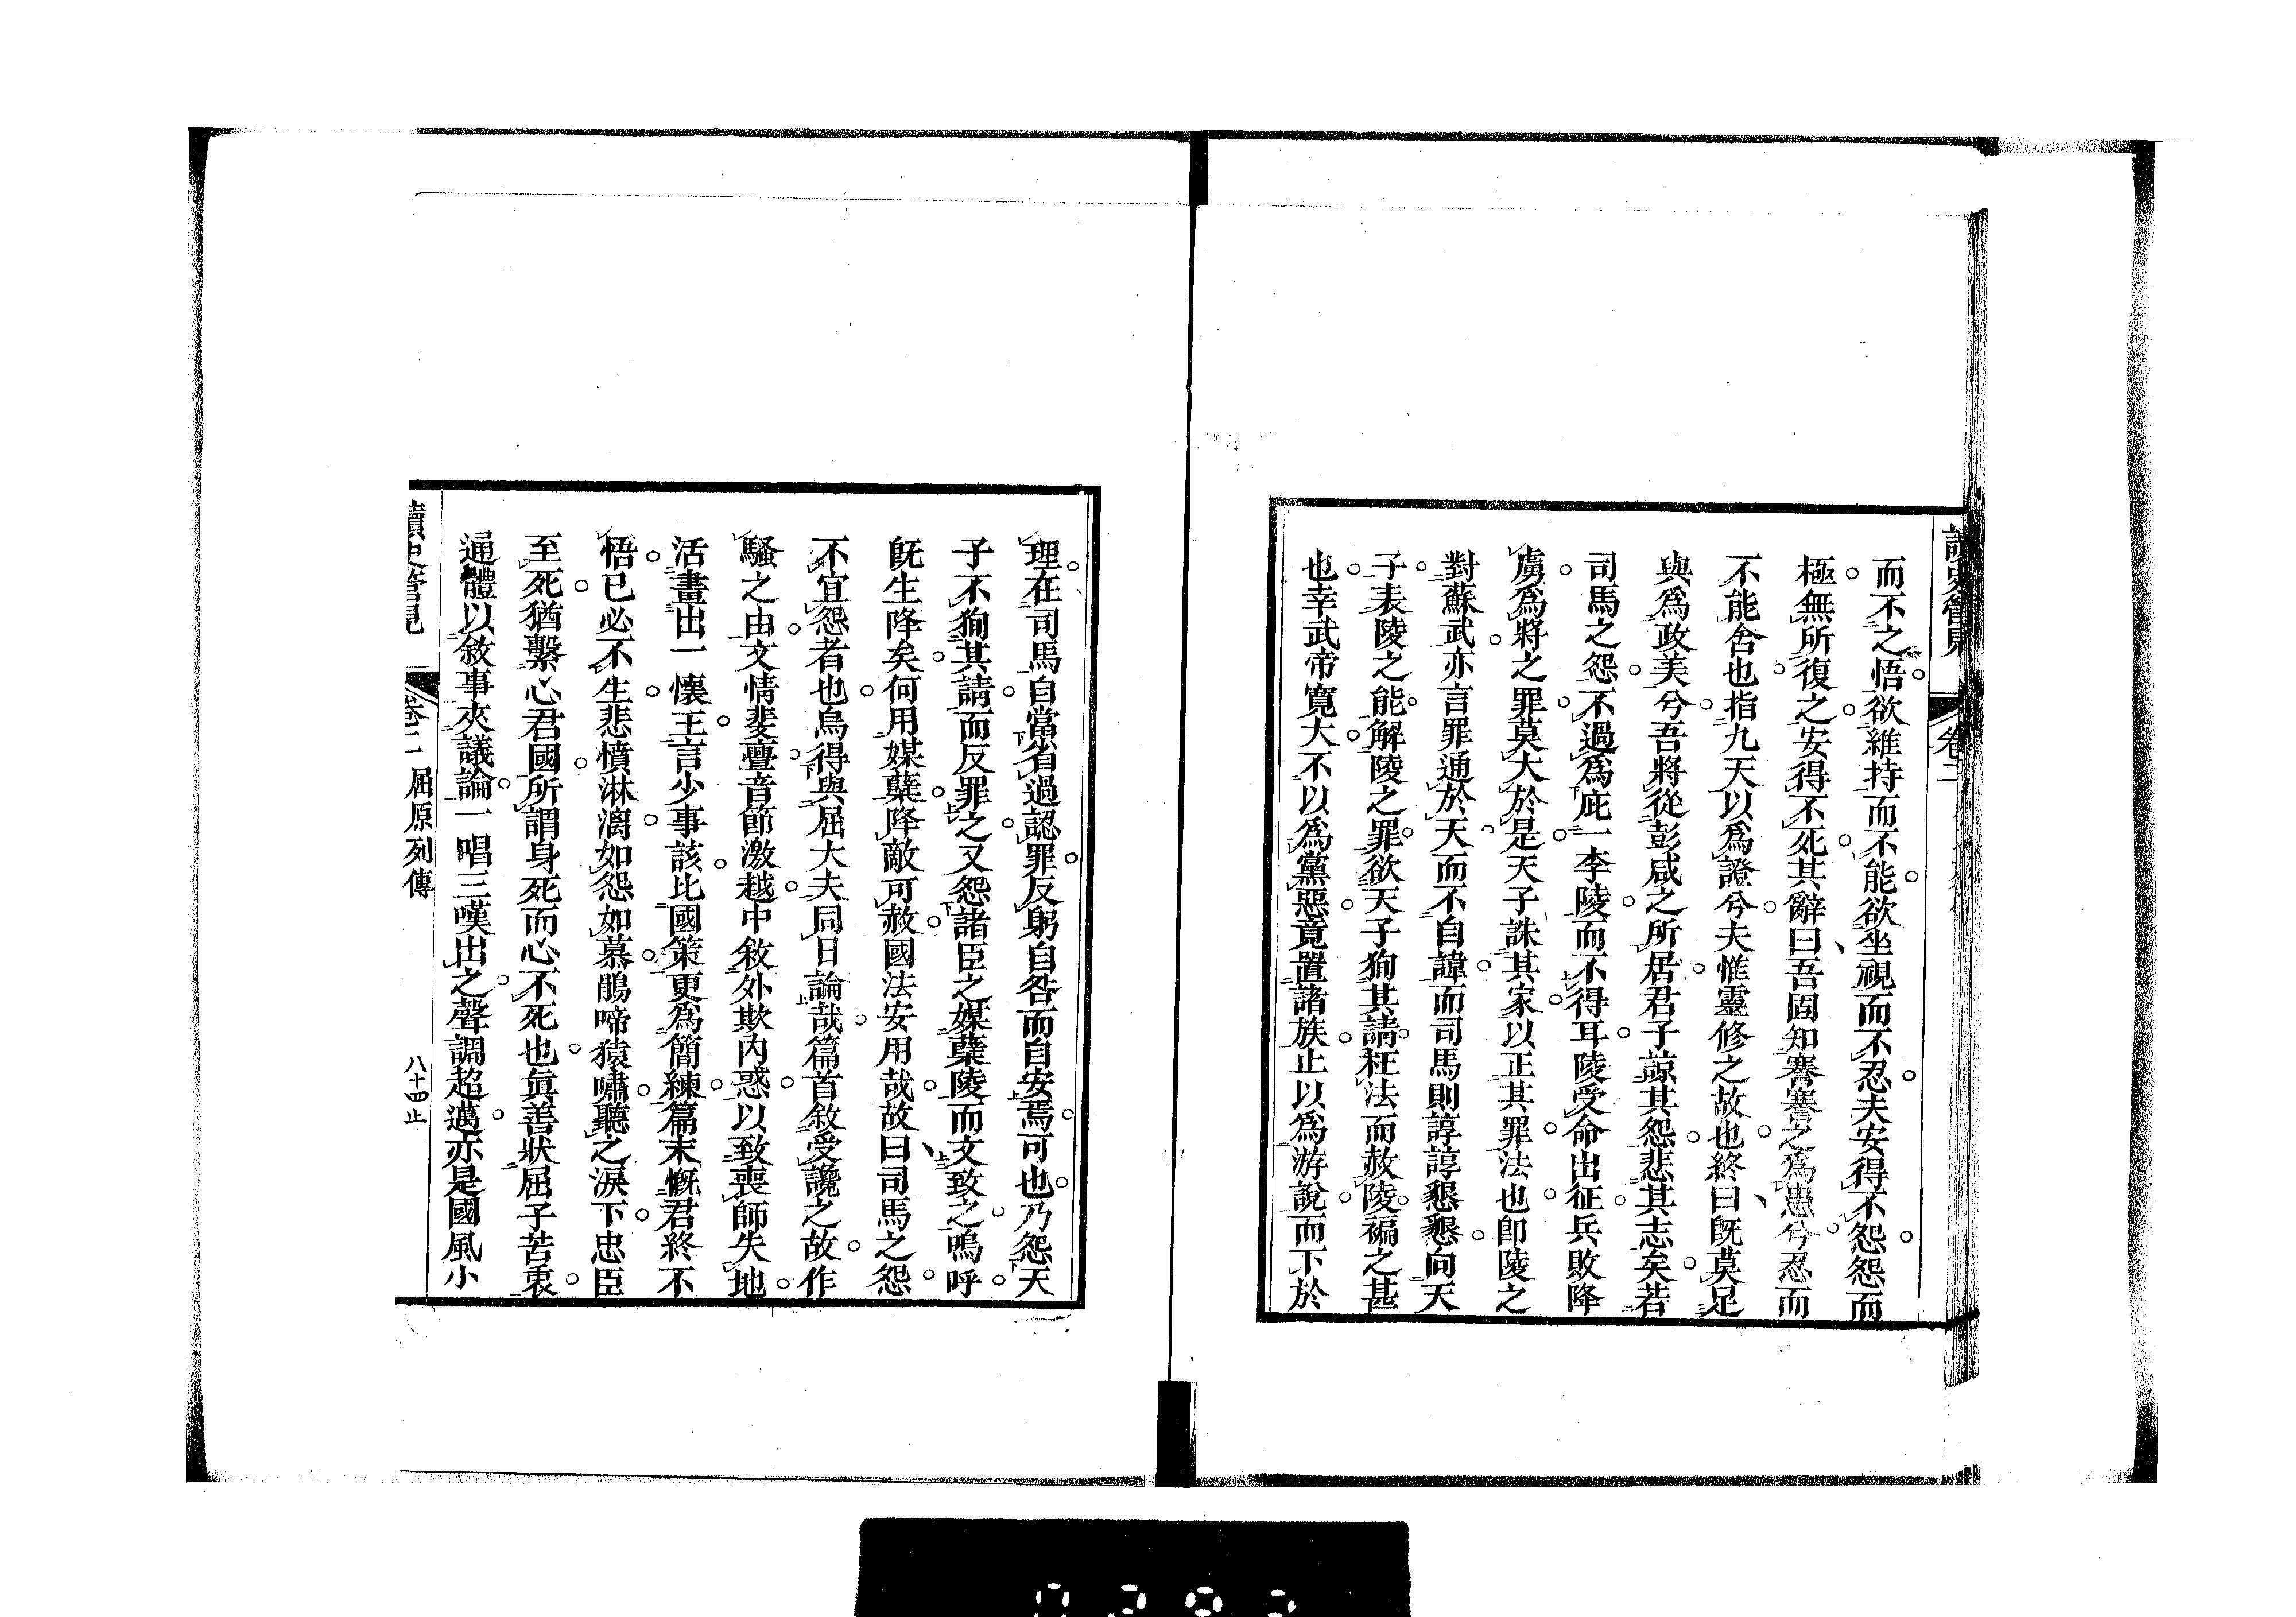 讀史管見
卷二
而不之悟欲維持而不能欲坐視而不忍夫安得不怨怨而
極無所復之安得不死其辭曰吾固知謇謇之爲患兮忍而
不能舍也指九天以爲證兮夫惟靈修之故也終曰旣莫足
與爲政美兮吾將從彭咸之所居君子諒其怨悲其志矣若
司馬之怨不過爲庇一李陵而不得耳陵受命出征兵敗降
虜爲將之罪莫大於是天子誅其家以正其罪法也卽陵之
對蘇武亦言罪通於天而不自諱而司馬則諄諄懇懇向天
子表陵之能解陵之罪欲天子狥其請枉法而赦陵褊之甚
也幸武帝寬大不以爲黨惡竟置諸族止以爲游說而下於
理在司馬自當省過認罪反躬自咎而自安焉可也乃怨天
子不狥其請而反罪之又怨諸臣之媒蘖陵而文致之嗚呼
旣生降矣何用媒蘖降敵可赦國法安用哉故曰司馬之怨
不宜怨者也烏得與屈大夫同日論哉篇首敘受讒之故作
騷之由文情斐亹音節激越中敘外欺內惑以致喪師失地
活畫出一懷王言少事該比國策更爲簡練篇末慨君終不
悟已必不生悲憤淋漓如怨如慕鵑啼猿嘯聽之淚下忠臣
至死猶繫心君國所謂身死而心不死也眞善狀屈子苦衷
通體以敘事夾議論一唱三嘆出之聲調超邁亦是國風小
讀史管見
卷二 屈原列傳
八十四止